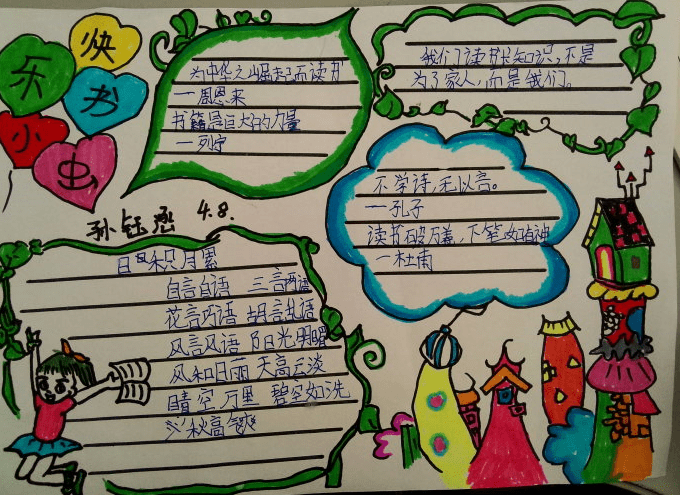 快
乐 书
小 虫
为中华之崛起而读书
一周恩来
书籍是巨大的力量
一列宁
我们读书长知识,不是
为了家人,而是我们。
不学诗,无以言。
一孔子
读书破万卷,下笔如有神
一杜甫
孙钰 4.8.
日积月累
自言自语 三言两语
花言巧语 胡言乱语
风言风语 阳光明媚
风和日丽 天高云淡
晴空万里 碧空如洗
秋高气爽